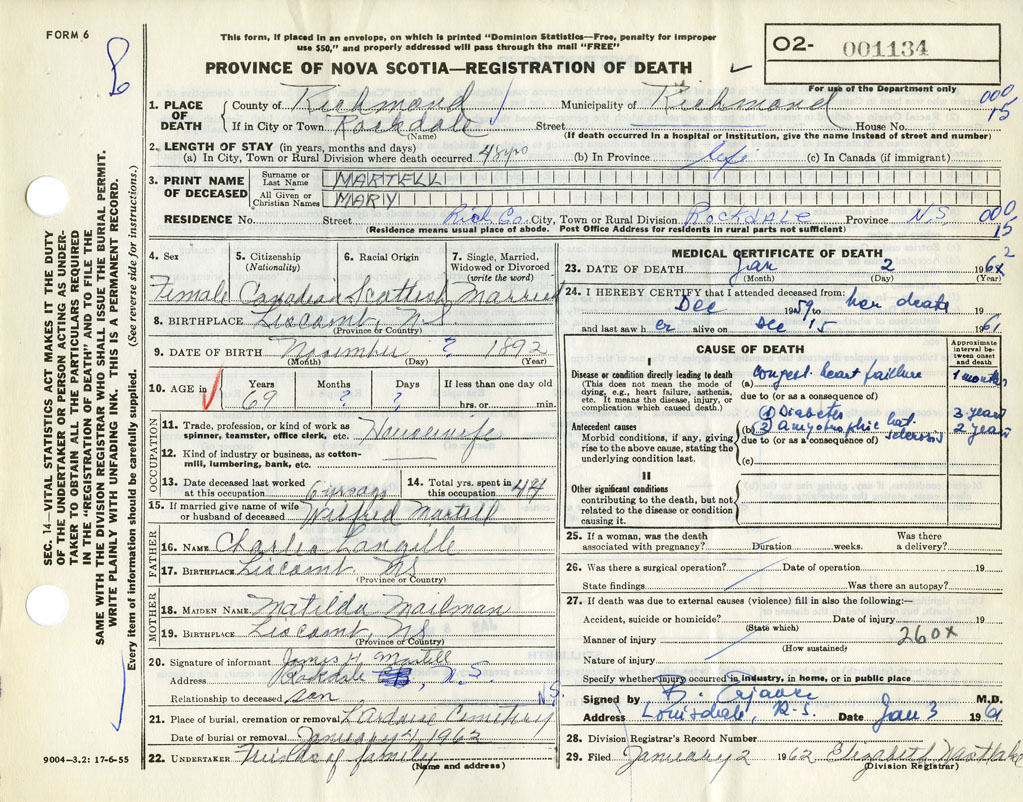 FORM 6
This form, if placed in an envelope, on which is printed "Dominion Statistics—Free, penalty for improper
use $50," and properly addressed will pass through the mail "FREE"
O2- 001134
PROVINCE OF NOVA SCOTIA—REGISTRATION OF DEATH
For use of the Department only
1. PLACE OF DEATH County of Richmond Municipality of Richmond 000
If in City or Town Rockdale Street House No. 15
(Name) (If death occurred in a hospital or institution, give the name instead of street and number)
2. LENGTH OF STAY (in years, months and days)
(a) In City, Town or Rural Division where death occurred 48 yrs (b) In Province life (c) In Canada (if immigrant)
3. PRINT NAME OF DECEASED
Surname or Last Name MARTELL
All Given or Christian Names MARY
RESIDENCE No. Street Rich Co. City, Town or Rural Division ROCKDALE Province N.S. 000
(Residence means usual place of abode. Post Office Address for residents in rural parts not sufficient) 15
4. Sex Female
5. Citizenship (Nationality) Canadian
6. Racial Origin Scottish
7. Single, Married, Widowed or Divorced (write the word) Married
8. BIRTHPLACE Liscomb, N.S.
(Province or Country)
9. DATE OF BIRTH November ? 1892
(Month) (Day) (Year)
10. AGE in Years Months Days If less than one day old
69 ? ? hrs. or min.
OCCUPATION
11. Trade, profession, or kind of work as spinner, teamster, office clerk, etc. Housewife
12. Kind of industry or business, as cotton-mill, lumbering, bank, etc.
13. Date deceased last worked at this occupation 14. Total yrs. spent in this occupation 44
15. If married give name of wife or husband of deceased Wilfred Martell
FATHER
16. NAME Charles Langille
17. BIRTHPLACE Liscomb NS
(Province or Country)
MOTHER
18. MAIDEN NAME Matilda Mailman
19. BIRTHPLACE Liscomb, NS
(Province or Country)
20. Signature of informant James H Martell
Address Rockdale, N.S.
Relationship to deceased son
N.S.
21. Place of burial, cremation or removal L'Ardoise Cemetery
Date of burial or removal January 4 1962
22. UNDERTAKER Friends of family
(Name and address)
MEDICAL CERTIFICATE OF DEATH
23. DATE OF DEATH Jan 2 1962
(Month) (Day) (Year)
24. I HEREBY CERTIFY that I attended deceased from:
Dec 1959 to her death 19
and last saw her alive on Dec 15 1961
CAUSE OF DEATH
Approximate interval between onset and death
I
Disease or condition directly leading to death
(This does not mean the mode of dying, e.g., heart failure, asthenia, etc. It means the disease, injury, or complication which caused death.)
(a) Congest. heart failure 1 month
due to (or as a consequence of)
(1) Diabetes 3 years
Antecedent causes
Morbid conditions, if any, giving rise to the above cause, stating the underlying condition last.
(b) (2) Amyotrophic lat. sclerosis 2 years
due to (or as a consequence of)
(c)
II
Other significant conditions
contributing to the death, but not related to the disease or condition causing it.
25. If a woman, was the death associated with pregnancy? Duration weeks. Was there a delivery?
26. Was there a surgical operation? Date of operation 19
State findings Was there an autopsy?
27. If death was due to external causes (violence) fill in also the following:—
Accident, suicide or homicide? Date of injury 19
(State which)
Manner of injury 260X
(How sustained)
Nature of injury
Specify whether injury occurred in industry, in home, or in public place
Signed by B. M.D.
Address Louisdale, Date Jan 3 196
28. Division Registrar's Record Number
29. Filed January 2 1962 Elizabeth
(Division Registrar)
SEC. 14—VITAL STATISTICS ACT MAKES IT THE DUTY
OF THE UNDERTAKER OR PERSON ACTING AS UNDER-
TAKER TO OBTAIN ALL THE PARTICULARS REQUIRED
IN THE "REGISTRATION OF DEATH" AND TO FILE THE
SAME WITH THE DIVISION REGISTRAR WHO SHALL ISSUE THE BURIAL PERMIT.
WRITE PLAINLY WITH UNFADING INK. THIS IS A PERMANENT RECORD.
Every item of information should be carefully supplied. (See reverse side for instructions.)
9004—3.2: 17-6-55